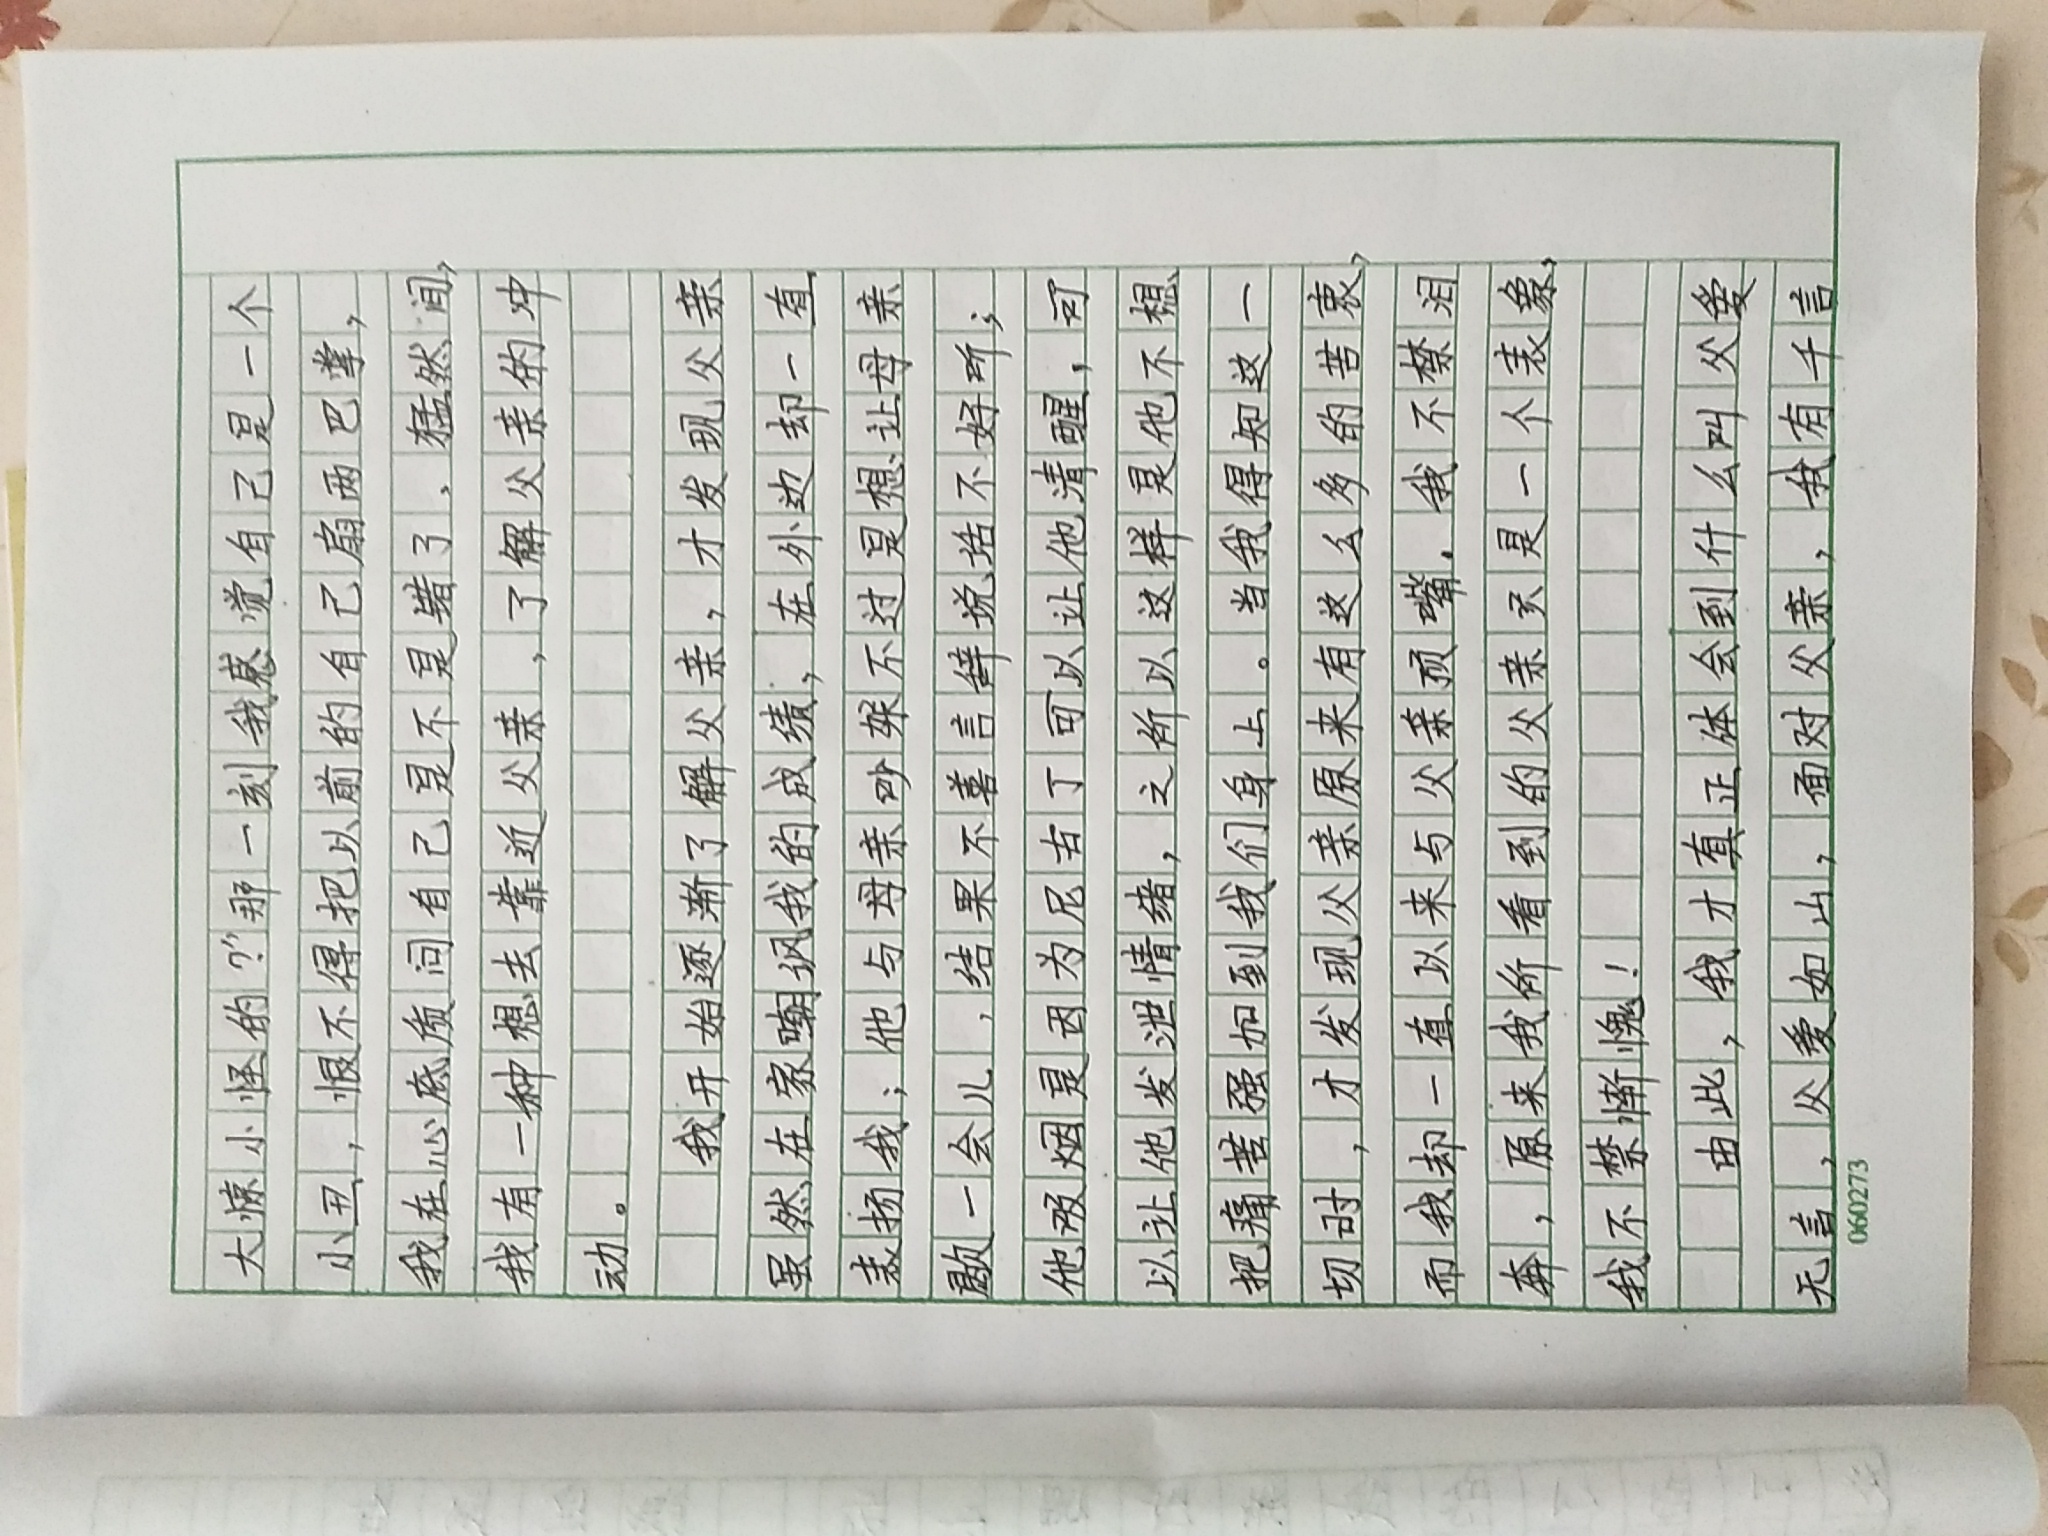 大惊小怪的?”那一刻我感觉自己是一个
小丑，恨不得把以前的自己扇两巴掌，
我在心底质问自己是不是错了，猛然间，
我有一种想去靠近父亲，了解父亲的冲
动。
我开始逐渐了解父亲，才发现父亲
虽然在家嘲讽我的成绩，在外边却一直
表扬我；他与母亲吵架不过是想让母亲
歇一会儿，结果不善言辞说话不好听；
他吸烟是因为尼古丁可以让他清醒，可
以让他发泄情绪，之所以这样是他不想
把痛苦强加到我们身上。当我得知这一
切时，才发现父亲原来有这么多的苦衷，
而我却一直以来与父亲顶嘴．我不禁泪
奔，原来我所看到的父亲只是一个表象，
我不禁惭愧！
由此，我才真正体会到什么叫父爱
无言，父爱如山，面对父亲，我有千言
060273